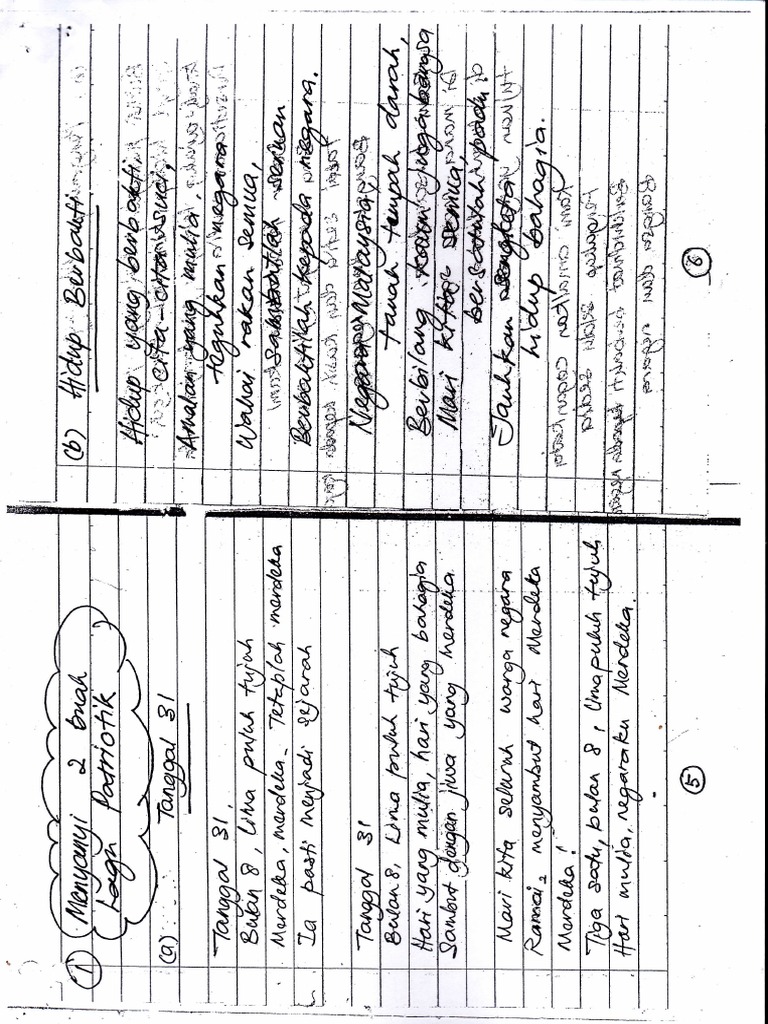 ① Menyanyi 2 buah
Lagu Patriotik
(a) Tanggal 31
Tanggal 31,
Bulan 8, Lima puluh tujuh
Merdeka, merdeka. Tetaplah merdeka
Ia pasti menjadi sejarah
Tanggal 31
Bulan 8, Lima puluh tujuh
Hari yang mulia, hari yang bahagia
Sambut dengan jiwa yang merdeka
Mari kita seluruh warga negara
Ramai2 menyambut hari Merdeka
Merdeka!
Tiga satu, bulan 8, limapuluh tujuh
Hari mulia, negaraku Merdeka.
⑤
(b) Hidup Berbakti
Hidup yang berbakti
cita-cita suci,
Amalan yang mulia,
teguhkan negara
Wahai rakan semua,
Berbaktilah kepada negara.
Negara Malaysia,
tanah tumpah darah,
Berbilang kaum juga bangsa
Mari kita semua
bersatulah padu
Jauhkan sengketa
hidup bahagia.
⑥